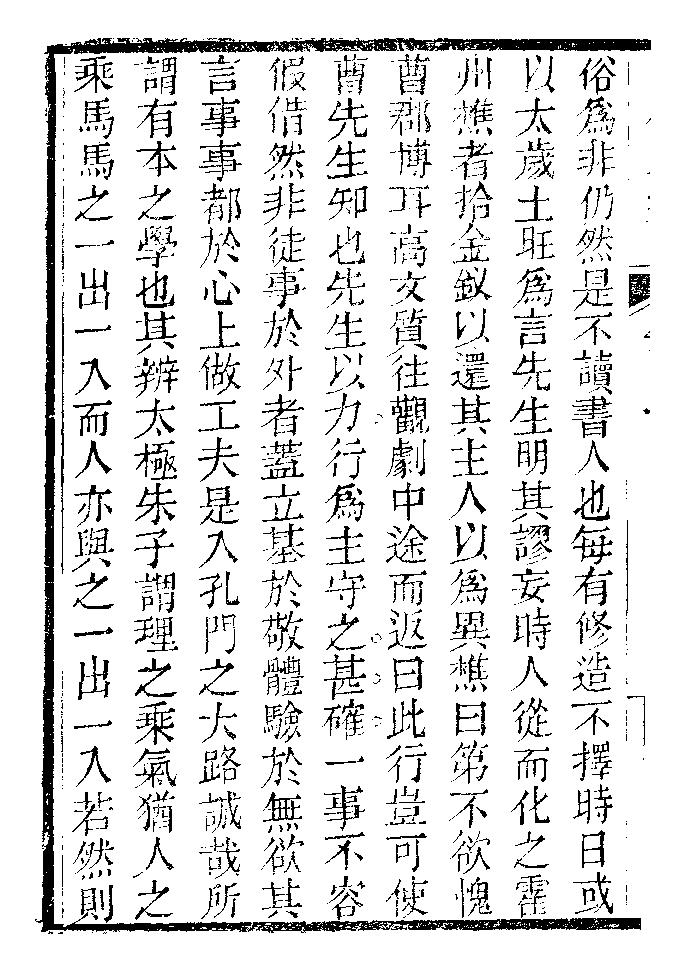 俗爲非仍然是不讀書人也每有修造不擇時日或
以太歲土旺爲言先生明其謬妄時人從而化之霍
州樵者拾金釵以還其主人以爲異樵曰第不欲愧
曹郡博耳高文質往觀劇中途而返曰此行豈可使
曹先生知也先生以力行爲主守之甚確一事不容
假借然非徒事於外者蓋立基於敬體驗於無欲其
言事事都於心上做工夫是入孔門之大路誠哉所
謂有本之學也其辨太極朱子謂理之乘氣猶人之
乘馬馬之一出一入而人亦與之一出一入若然則